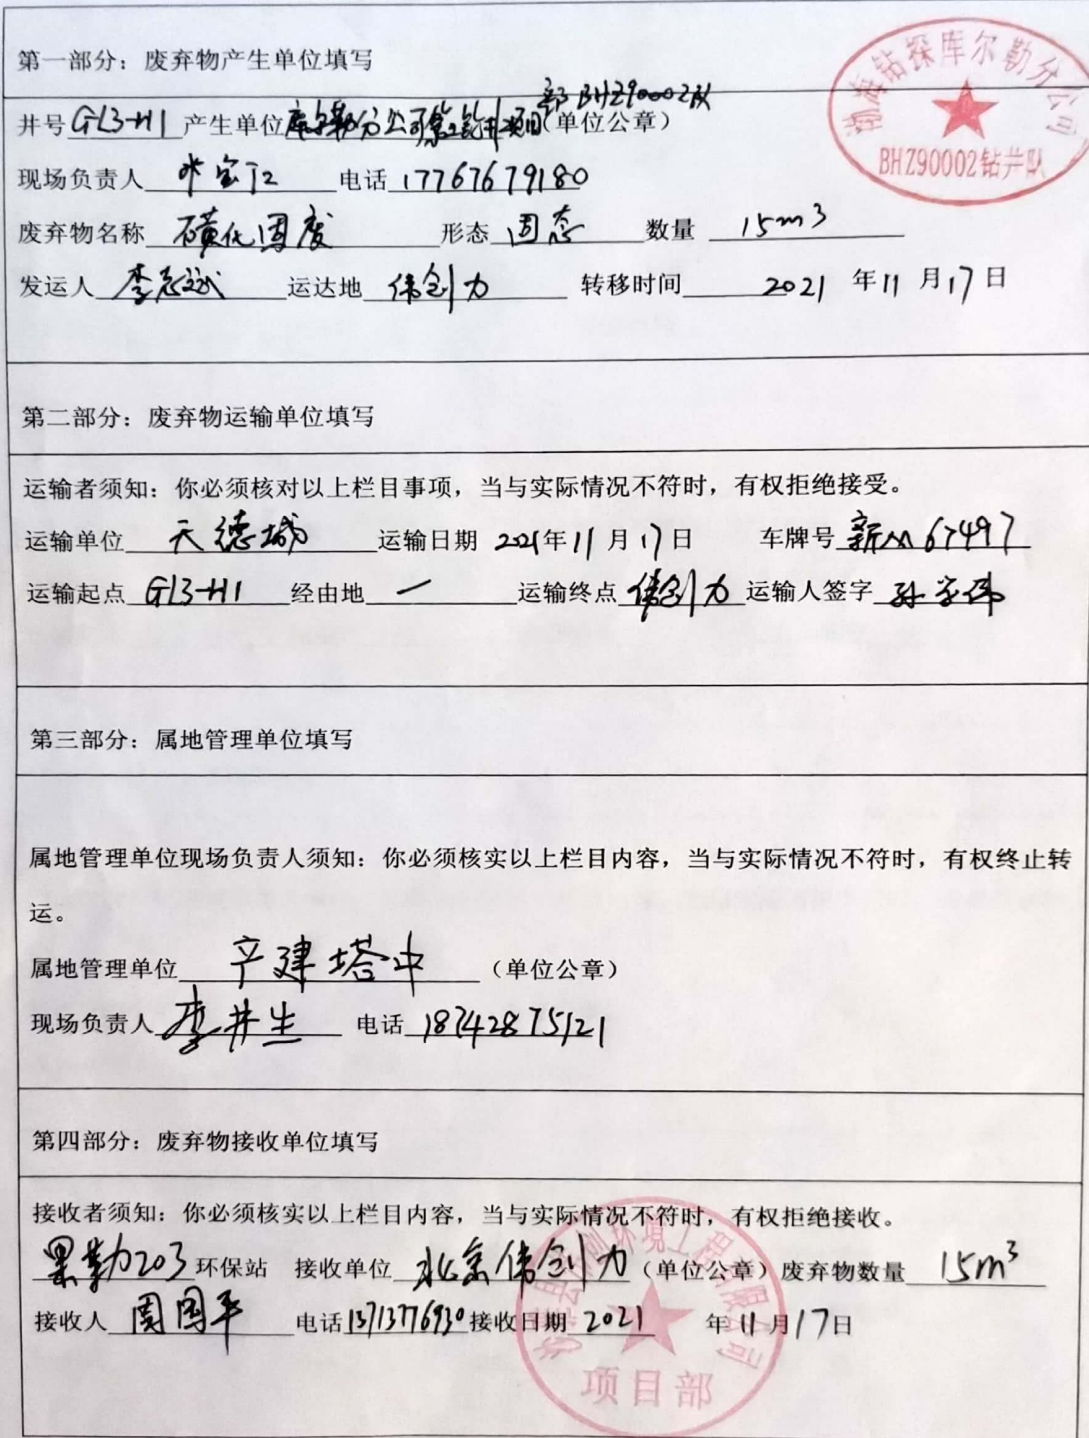 第一部分：废弃物产生单位填写
渤海钻探库尔勒分公司
BHZ90002钻井队
部BHZ90002队
井号GL3-H1 产生单位库尔勒分公司第二钻井项目（单位公章）
现场负责人 电话17767679180
废弃物名称 磺化固废 形态 固态 数量 15m³
发运人 李志斌 运达地 伟创力 转移时间 2021 年11月17日
第二部分：废弃物运输单位填写
运输者须知：你必须核对以上栏目事项，当与实际情况不符时，有权拒绝接受。
运输单位 天德城 运输日期 2021年11月17日 车牌号 新M67497
运输起点 GL3-H1 经由地 一 运输终点 伟创力 运输人签字 孙
第三部分：属地管理单位填写
属地管理单位现场负责人须知：你必须核实以上栏目内容，当与实际情况不符时，有权终止转
运。
属地管理单位 产建塔中 （单位公章）
现场负责人 李井生 电话 18742875121
第四部分：废弃物接收单位填写
接收者须知：你必须核实以上栏目内容，当与实际情况不符时，有权拒绝接收。
果勒203环保站 接收单位 北京伟创力（单位公章）废弃物数量 15m³
接收人 周国平 电话13713776930接收日期 2021 年11月17日
环境工程有限公司
项目部